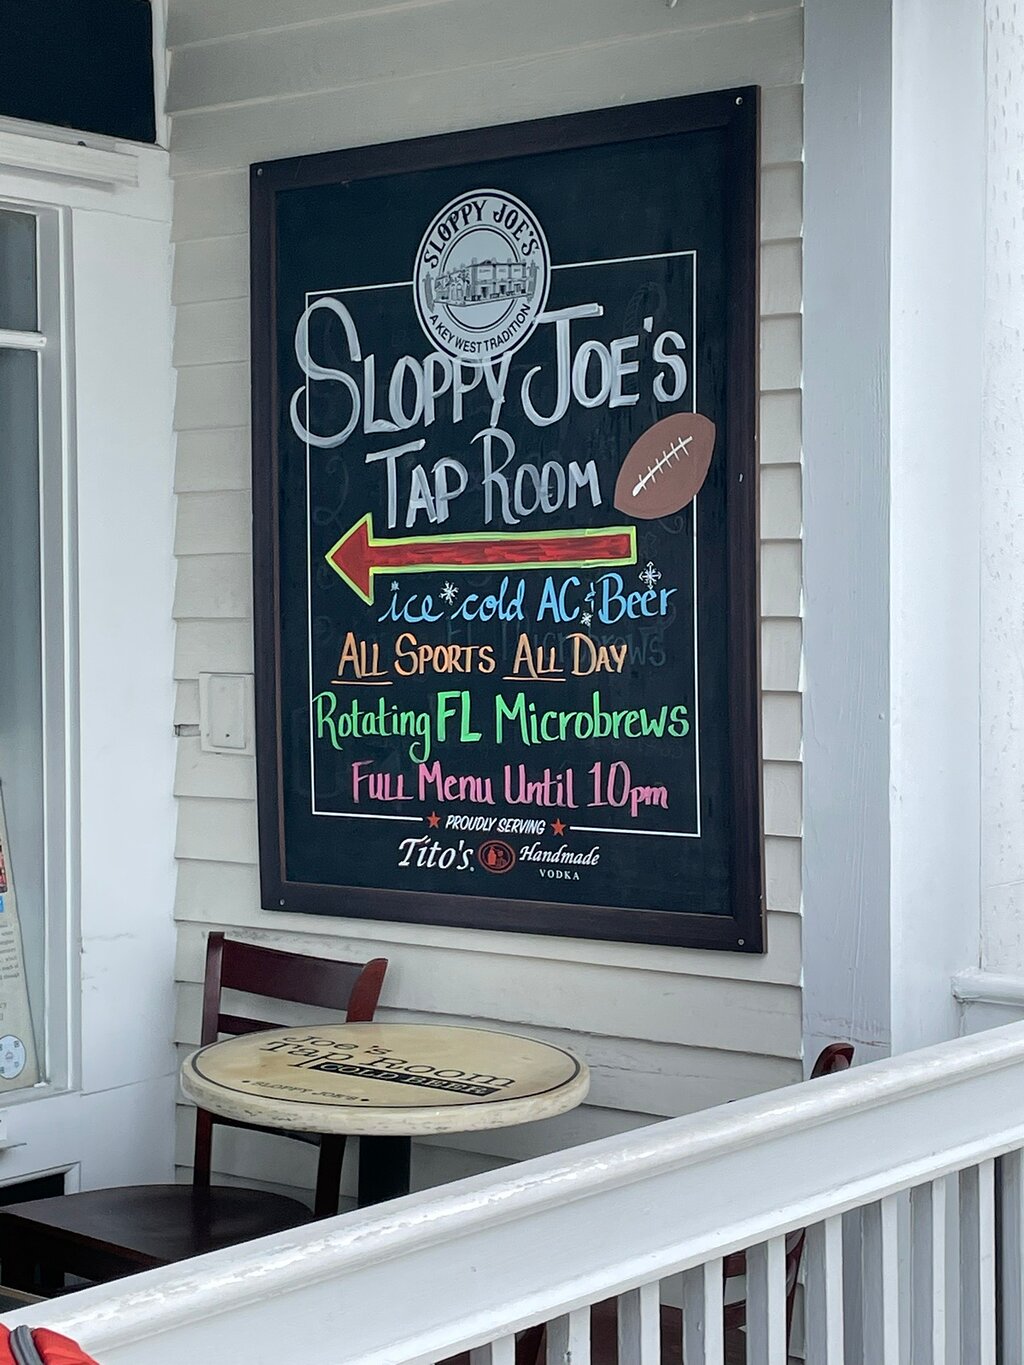 SLOPPY JOE'S
A KEY WEST TRADITION
SLOPPY JOE'S
TAP ROOM
ice cold AC & Beer
ALL SPORTS ALL DAY
Rotating FL Microbrews
FULL Menu Until 10pm
PROUDLY SERVING
Tito's. Handmade
VODKA
Joe's
Tap Room
COLD BEER
SLOPPY JOE'S